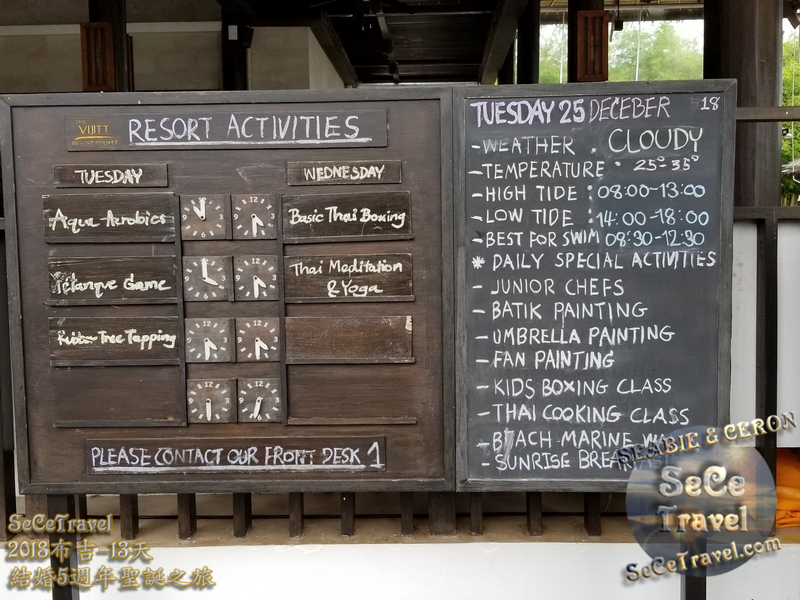 THE
VIJITT
RESORT PHUKET
RESORT ACTIVITIES
TUESDAY
WEDNESDAY
Aqua Aerobics
Basic Thai Boxing
Pétanque Game
Thai Meditation
& Yoga
Tree Tapping
PLEASE CONTACT OUR FRONT DESK 1
TUESDAY 25 DECEBER 18
- WEATHER . CLOUDY
- TEMPERATURE : 25°-35°
- HIGH TIDE : 08:00-13:00
- LOW TIDE : 14:00-18:00
- BEST FOR SWIM 08:30-12:30
* DAILY SPECIAL ACTIVITIES
- JUNIOR CHEFS
- BATIK PAINTING
- UMBRELLA PAINTING
- FAN PAINTING
- KIDS BOXING CLASS
- THAI COOKING CLASS
- BEACH MARINE
- SUNRISE
SeCeTravel
2018布吉-13天
結婚5週年聖誕之旅
& CERON
SeCe
Travel
SeCeTravel.com